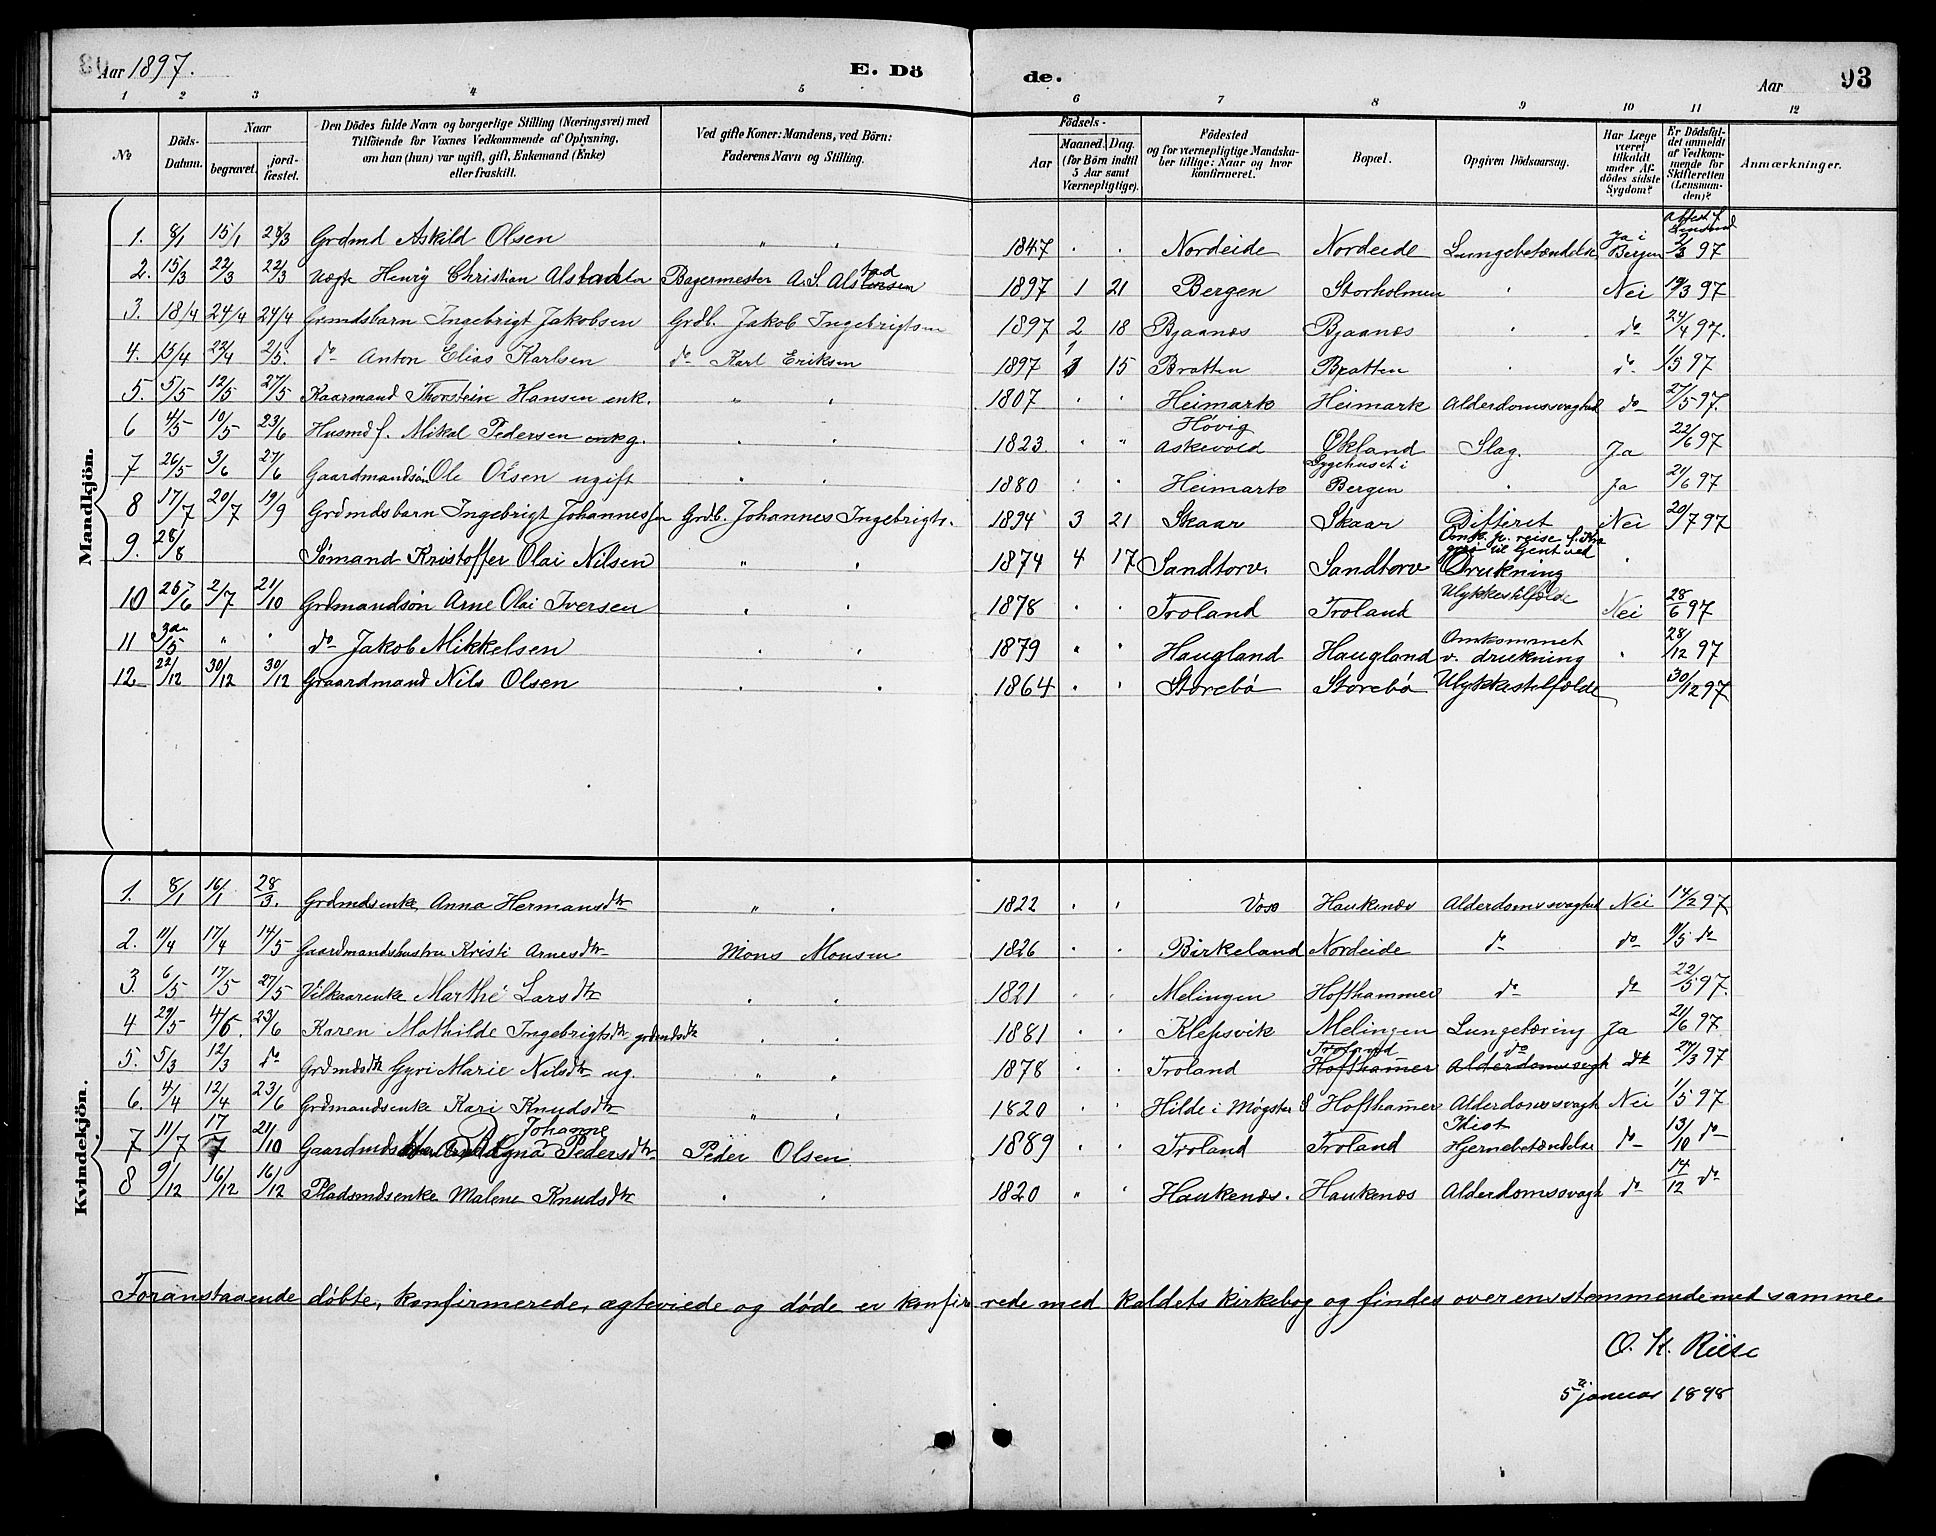 Aar 1897. E. Dö de. Aar 93
1 2 3 4 5 6 7 8 9 10 11 12
No Döds-Datum. Naar begravet. jord-fæstet. Den Dödes fulde Navn og borgerlige Stilling (Næringsvei) med Tilföiende for Voxnes Vedkommende af Oplysning, om han (hun) var ugift, gift, Enkemand (Enke) eller fraskilt. Ved gifte Koner: Mandens, ved Börn: Faderens Navn og Stilling. Födsels- Aar Maaned. Dag. (for Börn indtil 5 Aar samt Værnepligtige). Födested og for værnepligtige Mandskaber tillige: Naar og hvor konfirmeret. Bopæl. Opgiven Dödsaarsag. Har Læge været tilkaldt under Afdödes sidste Sygdom? Er Dödsfaldet anmeldt af Vedkommende for Skifteretten (Lensmanden)? Anmærkninger.
Mandkjön.
1. 8/1 15/1 28/3 Grdmd Askild Olsen " " 1847 " " Nordeide Nordeide Lungebetændelse Ja i Bergen Attest f. 2/3 97
2. 15/3 22/3 22/3 uægte Henry Christian Alstad Bagermester A. S. Alstad 1897 1 21 Bergen Storholmen " Nei 19/3 97
3. 18/4 24/4 24/4 Grmdsbarn Ingebrigt Jakobsen Grdb. Jakob Ingebrigtsen 1897 2 18 Bjaanæs Bjaanæs " do 24/4 97.
4. 15/4 23/4 2/5. do Anton Elias Karlsen do Karl Eriksen 1897 1 15 Bratten Bratten " do 1/5 97
5. 5/5 12/5 27/5 Kaarmand Thorstein Hansen enk. " " 1807 " " Heimark Heimark Alderdomssvaghed do 27/5 97.
6 4/5 10/5 23/6 Husmd f. Mikal Pedersen enkg. " " 1823 " " Høvig Askevold Økland Slag. Ja 22/6 97
7 26/5 3/6 27/6 Gaardmandsön Ole Olsen ugift " " 1880 " " Heimark Sygehuset i Bergen " Ja 21/6 97
8 17/7 20/7 19/9 Grdmdsbarn Ingebrigt Johannessen Grdb. Johannes Ingebrigts. 1894 3 21 Skaar Skaar Difterit Nei 20/7 97
9. 28/8 Sømand Kristoffer Olai Nilsen " " 1874 4 17 Sandtorv. Sandtorv Omk. p. reise f. til Gent ved Drukning "
10 26/6 2/7 21/10 Grdmandsön Arne Olai Iversen " " 1878 " " Troland Troland Ulykkestilfælde Nei 28/6 97
11 3/5 " " do Jakob Mikkelsen " " 1879 " " Haugland Haugland Omkommet v. drukning " 28/12 97
12 22/12 30/12 30/12 Graardmand Nils Olsen " " 1864 " " Storebø Storebø Ulykkestilfælde 30/12 97
Kvindekjön.
1. 8/1 16/1 28/3. Grdmdsenke Anna Hermansdtr " " 1822 " " Voss Haukenæs Alderdomssvaghed Nei 14/2 97
2. 11/4 17/4 14/5 Gaardmandshustru Kristi Arnesdtr Mons Monsen 1826 " " Birkeland Nordeide do do 11/5 do
3. 6/5 17/5 27/5 Vilkaarenke Marthe Larsdtr " " 1821 " " Melingen Hofthammer do do 22/5 97.
4 29/5 4/6. 23/6 Karen Mathilde Ingebrigtsdtr grdmdsdtr " " 1881 " " Klepsvik Melingen Lungetæring Ja 21/6 97
5. 5/3 12/3 do Grdmdsdtr Gyri Marie Nilsdtr ug. " " 1878 " " Troland Troland Hofthamer do Alderdomssvgh do 27/3 97
6. 4/4 12/4 23/6 Grdmandsenke Kari Knudsdtr " " 1820 " " Hilde i Møgster S Hofthamer Alderdomssvagh Nei 1/5 97
7 11/7 17/7 21/10 Gaardmds Johanne Agna Pedersdtr Peder Olsen 1889 " " Troland Troland Idiot Hjernebetændelse do 13/10 do
8 9/12 16/12 16/12 Pladsmdsenke Malene Knudsdtr " " 1820 " " Haukenæs. Haukenæs Alderdomssvagh do 14/12 do
Foranstaaende døbte, konfirmerede, ægteviede og døde er konfirerede med kaldets kirkebog og findes overensstemmende med samme.
O. K. Riise
5 januar 1898